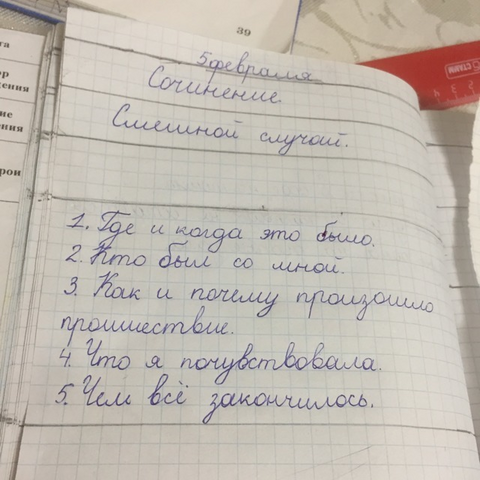 39
5 февраля
Сочинение.
Смешной случай.
1. Где и когда это было.
2. Кто был со мной.
3. Как и почему произошло
проишествие.
4. Что я почувствовала.
5. Чем всё закончилось.